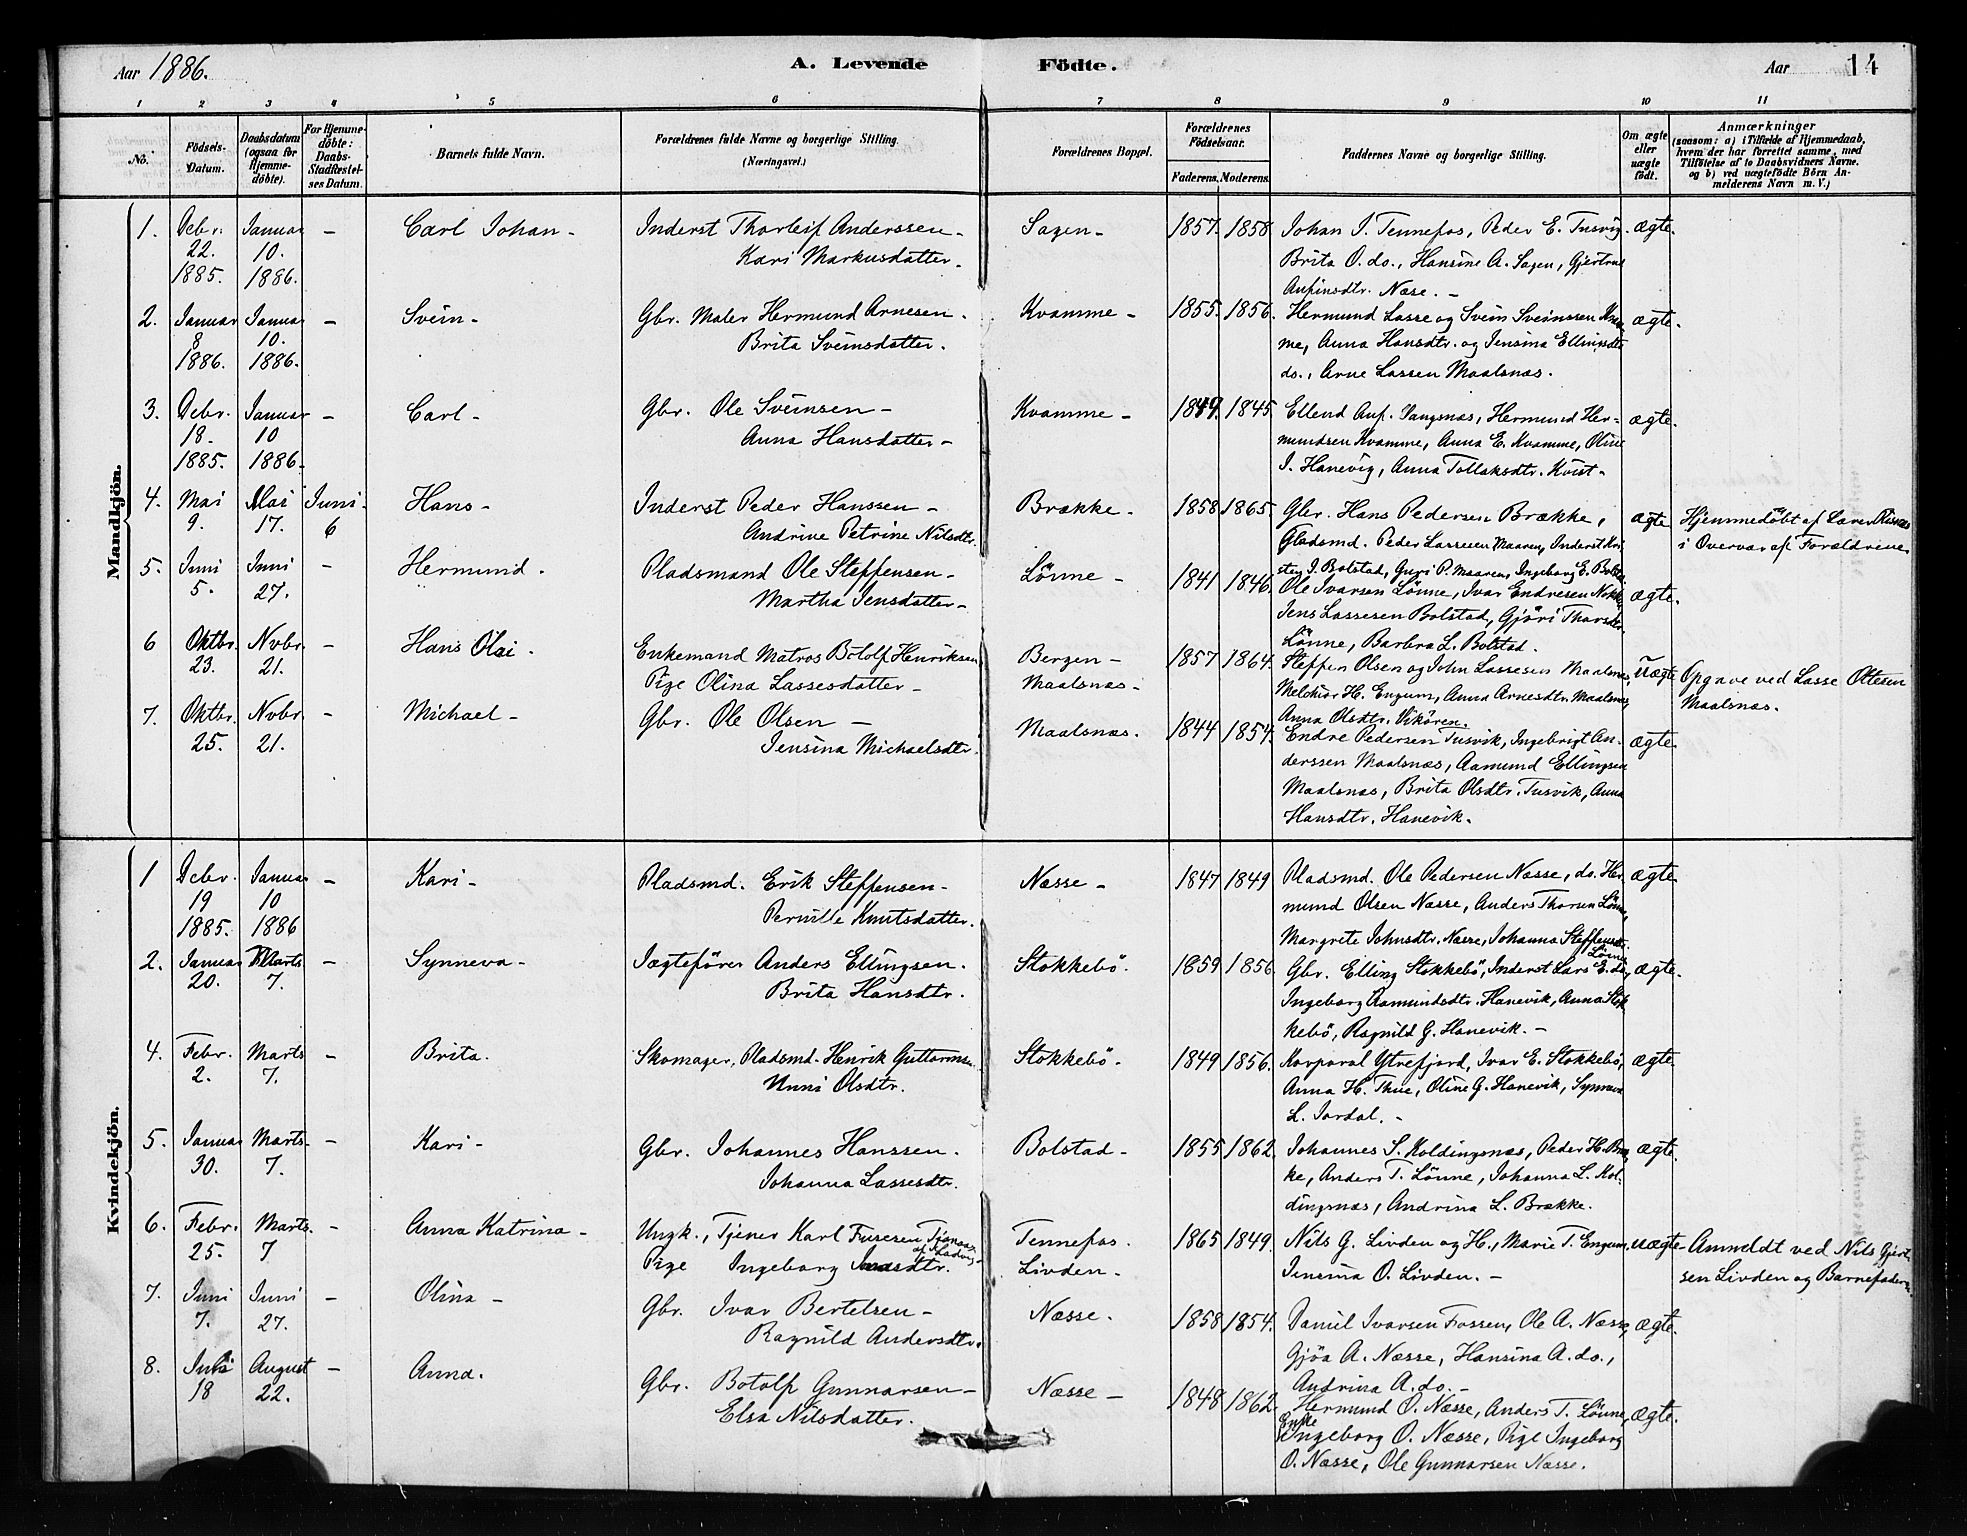 Aar 1886. A. Levende Födte. Aar 14
1 2 3 4 5 6 7 8 9 10 11
No. Födsels-Datum. Daabsdatum (ogsaa for Hjemmedöbte). For Hjemmedöbte: Daabs-Stadfæstelses Datum. Barnets fulde Navn. Forældrenes fulde Navne og borgerlige Stilling. (Næringsvei.) Forældrenes Bopæl. Forældrenes Födselsaar. Faderens. Moderens. Faddernes Navne og borgerlige Stilling. Om ægte eller uægte födt. Anmærkninger (saasom: a) i Tilfælde af Hjemmedaab, hvem der har forrettet samme, med Tilföielse af to Daabsvidners Navne, og b) ved uægtefödte Börn Anmelderens Navn m. V.)
Mandkjön.
1. Debr. Januar - Carl Johan - Inderst Thorleif Anderssen - Sagen - 1857. 1858. Johan J. Tennefos, Peder E. Tusvig. ægte.
22. 10. Kari Markusdatter. Brita O. do., Hansine A. Sagen, Gjertrue
1885. 1886. Anfinsdtr. Næse. -
2. Januar Januar - Svein - Gbr. Maler Hermund Arnesen. Kvamme - 1855. 1856. Hermund Lasse og Svein Sveinssen Kvam- ægte.
8 10. Brita Sveinsdatter. me, Anna Hansdtr. og Jensina Ellingsdtr
1886. 1886. do., Arne Lassen Maalsnæs.
3. Debr. Januar - Carl - Gbr. Ole Sveinsen - Kvamme - 1849. 1845. Ellend Anf. Vangsnæs, Hermund Her- ægte.
18. 10 Anna Hansdatter - mundsen Kvamme, Anna E. Kvamme, Oline
1885. 1886. I. Hanevig, Anna Tollaksdtr. Kvist -
4. Mai Mai Juni Hans - Inderst Peder Hanssen - Brække - 1858 1865. Gbr. Hans Pedersen Brække, ægte Hjemmedöbt af Lærer
9. 17. 6 Andrine Petrine Nilsdtr. Pladsmd. Peder Lassesen Maaren, Inderst Kri i Overvær af Forældrene
sten J. Bolstad, Guri P. Maaren, Ingeborg E.
5. Juni Juni - Hermund. Pladsmand Ole Steffensen - Lönne - 1841 1846. Ole Ivarsen Lönne, Ivar Endresen ægte.
5. 27. Martha Jensdatter - Jens Lassesen Bolstad, Gjöri
Lönne, Barbra L. Bolstad.
6 Oktbr. Novbr. - Hans Olai. Enkemand Matros Botolf Henriksen Bergen - 1857 1864. Steffen Olsen og John Lassesen Maalsnæs, uægte Opgave ved Lasse Ottesen
23. 21. Pige Olina Lassesdatter - Maalsnæs. Melchior H. Engum, Anna Arnesdtr. Maalsnæs, Maalsnæs.
Anna Olsdtr. Vikören.
7. Oktbr. Novbr. - Michael - Gbr. Ole Olsen - Maalsnæs. 1844 1854. Endre Pedersen Tusvik, Ingebrigt An- ægte.
25. 21. Jensina Michaelsdtr. derssen Maalsnæs, Aamund Ellingsen
Maalsnæs, Brita Olsdtr. Tusvik, Anna
Hansdtr. Hanevik.
Kvindekjön.
1 Debr. Januar - Kari - Pladsmd. Erik Steffensen - Næsse - 1847 1849 Pladsmd. Ole Pedersen Næsse, do. Her- ægte.
19 10 Pernille Knutsdatter. mund Olsen Næsse, Anders Lönne,
1885. 1886 Margrete Johnsdtr. Næsse, Johanna Steffensdtr. Lönne
2. Januar Marts - Synneva - Jægteförer Anders Ellingsen. Stokkebö. 1859 1856 Gbr. Elling Stokkebö, Inderst Lars E. do, ægte.
20. 7. Brita Hansdtr. Ingeborg Aamundsdtr. Hanevik, Anna Stok
kebö, Ragnild G. Hanevik. -
4. Febr. Marts - Brita. Skomager, Pladsmd. Henrik Guttormsen Stokkebö. 1849 1856. Korporal Ytrefjord, Ivar E. Stokkebö, ægte.
2. 7. Unni Olsdtr. Anna H. Thue, Oline G. Hanevik, Synneva
L. Jordal. -
5. Januar Marts - Kari - Gbr. Johannes Hanssen. Bolstad - 1855 1862. Johannes S. Koldingsnæs, Peder H. Bræk ægte.
30. 7. Johanna Lassesdtr. ke, Anders T. Lönne, Johanna L. Kol-
dingsnæs, Andrina L. Brække.
6. Febr. Marts. - Anna Katrina - Ungk., Tjener Karl Tennefos. 1865 1849. Nils G. Livden og H., Marie T. Engum, uægte - Anmeldt ved Nils Gjert
25. 7 Pige Ingeborg Livden - Jensina O. Livden. - sen Livden og Barnefaderen
7. Juni Juni - Olina - Gbr. Ivar Bertelsen - Næsse. 1858 1854. Daniel Ivarsen Fossen, Ole A. Næsse, ægte.
7. 27. Ragnild Andersdtr. Gjöa A. Næsse, Hansina A. do.,
Andrina A. do. -
8. Juli August - Anna. Gbr. Botolf Gunnarsen - Næsse - 1848 1862. Hermund O. Næsse, Anders T. Lönne, ægte.
18 22. Elsa Nilsdatter. Enke Ingeborg O. Næsse, Pige Ingeborg
O. Næsse, Ole Gunnarsen Næsse.